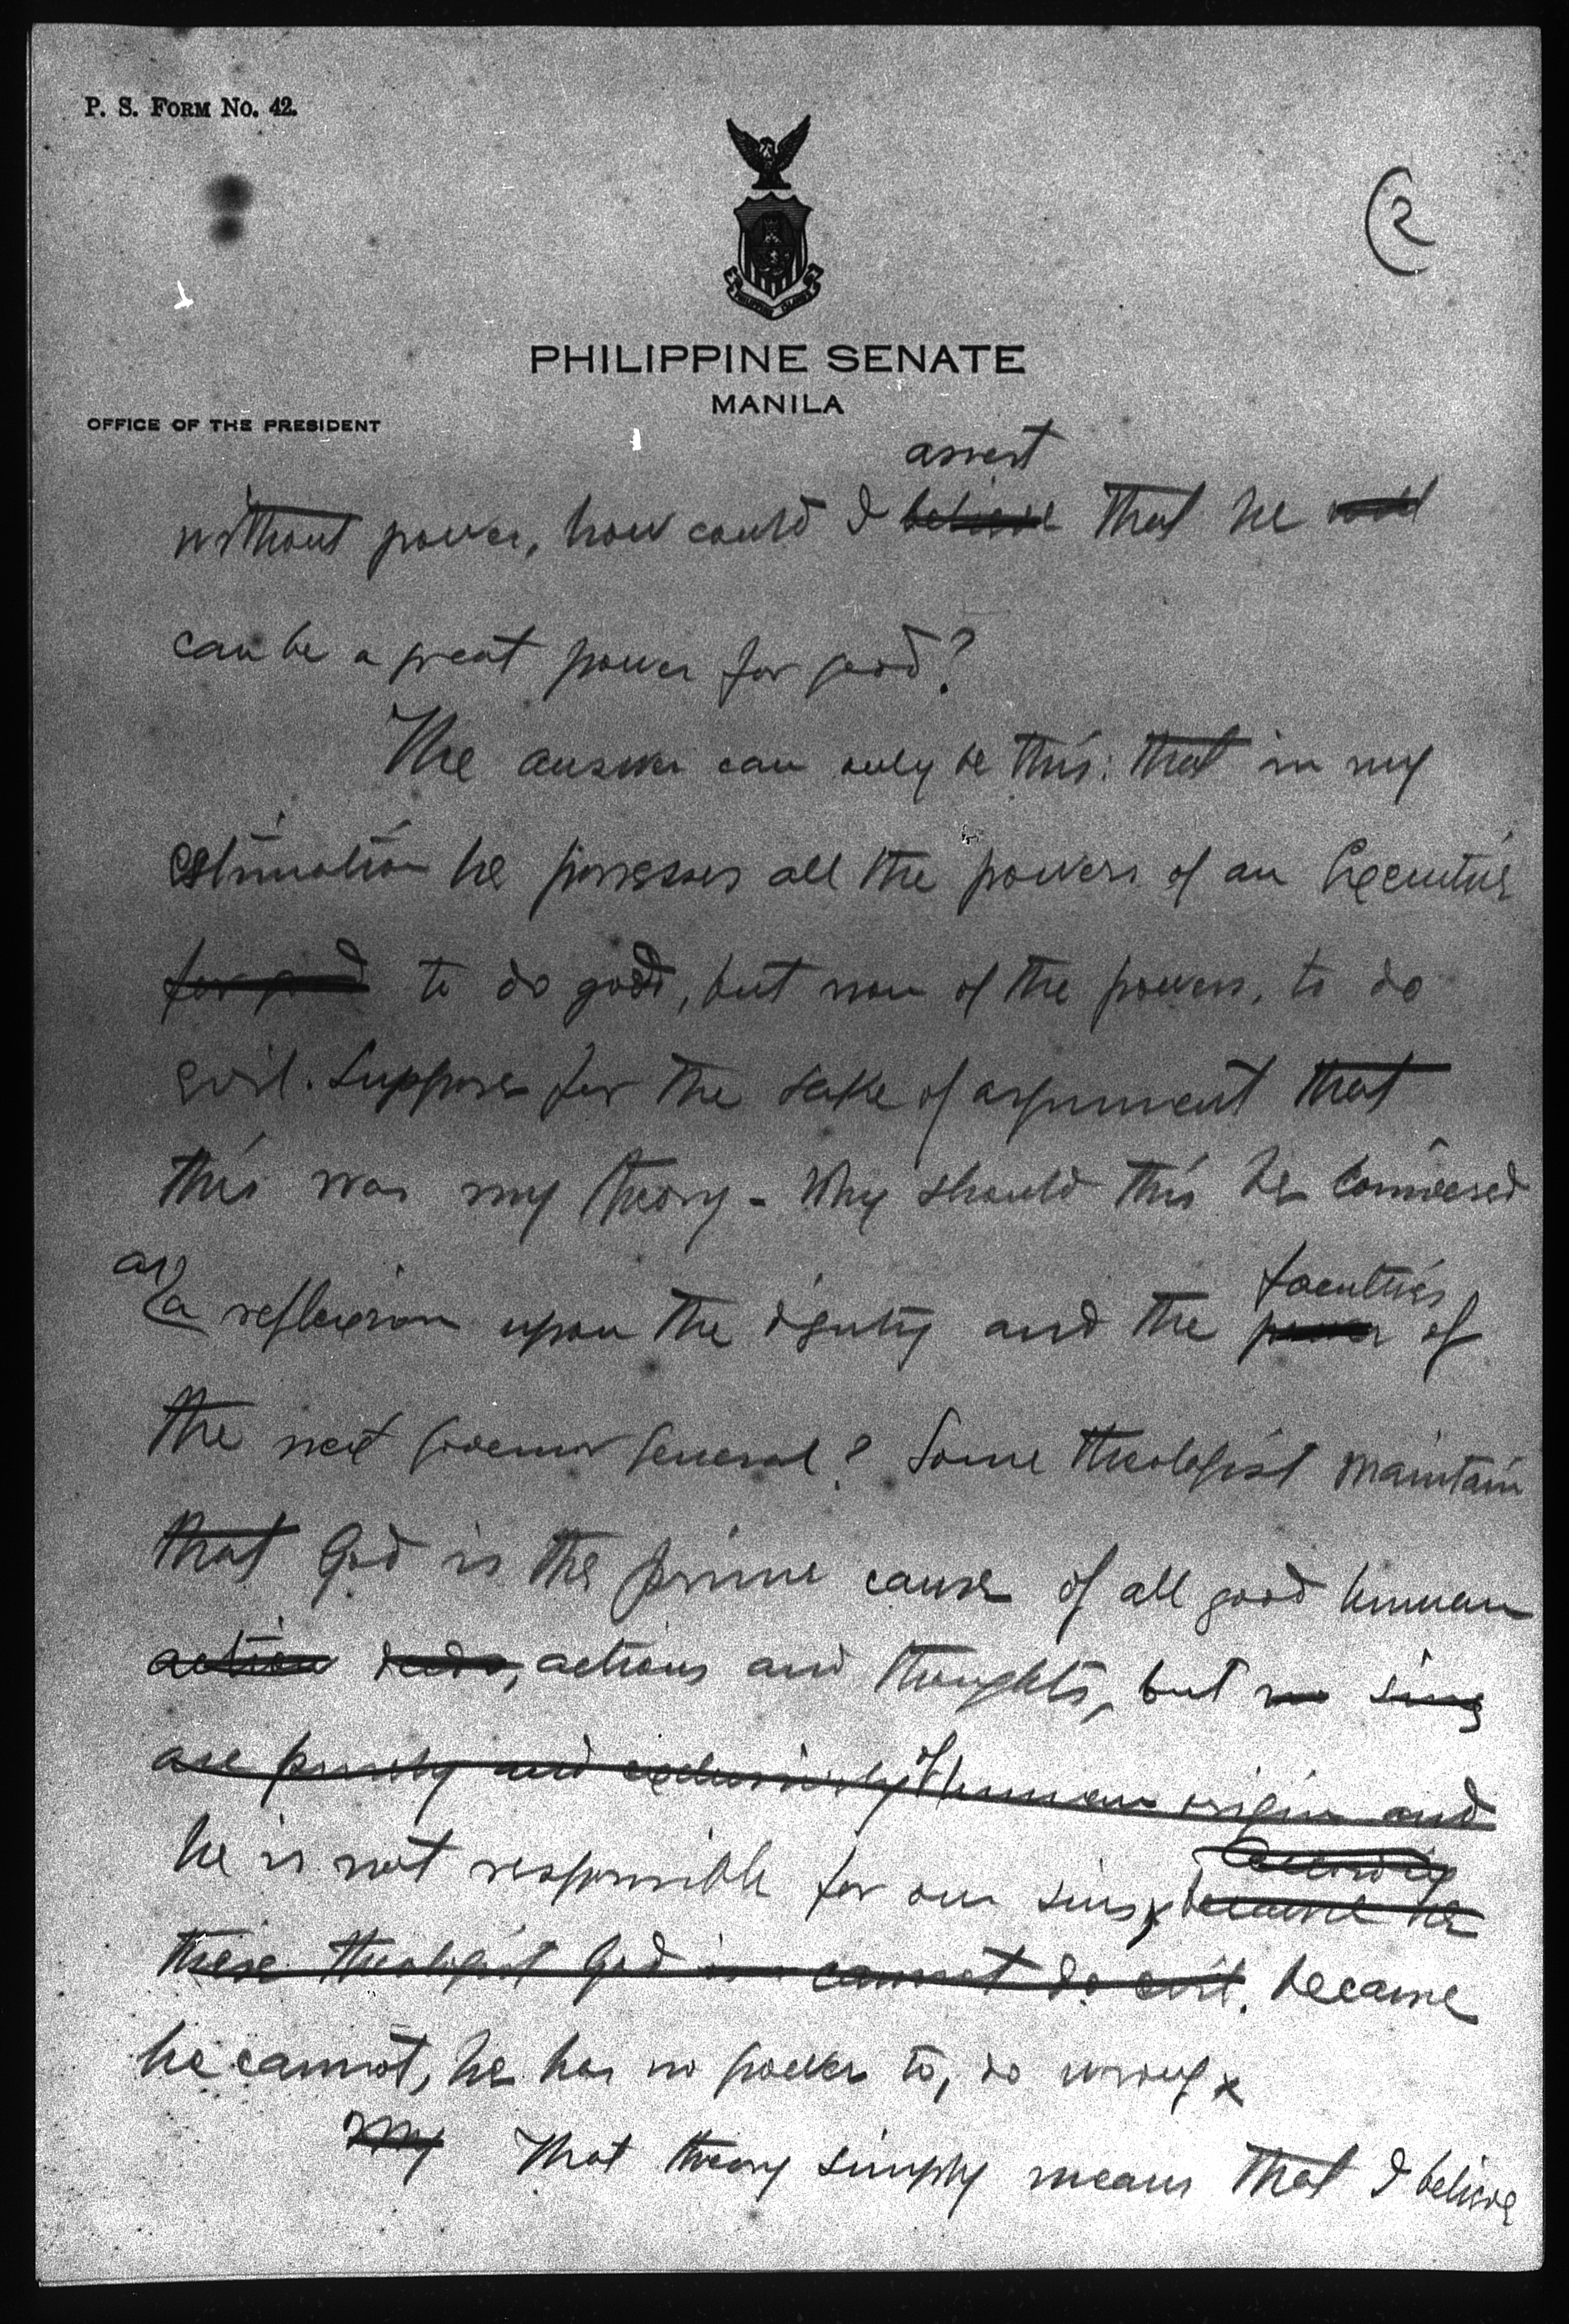 P. S. FORM NO. 42.
2
PHILIPPINE SENATE
MANILA
OFFICE OF THE PRESIDENT
assert
without power, how could I believe that he
can be a great power for good?
The answer can only be this: that in my
estimation he possesses all the powers of an Executive
for good to do good, but non of the powers, to do
evil. Suppose for the sake of argument that
this was my theory - Why should this be
as
a reflexion upon the dignity and the power of
faculties
the next Governor General? Some theologist maintain
that God is the prime cause of all good human
action deeds, actions and thoughts, but no sins
are purely and exclusively of human origin and
he is not responsible for our sins, because he
according
these theologist God is cannot do evil. because
he cannot, he has no power to, do wrong x
My That theory simply means that I believe